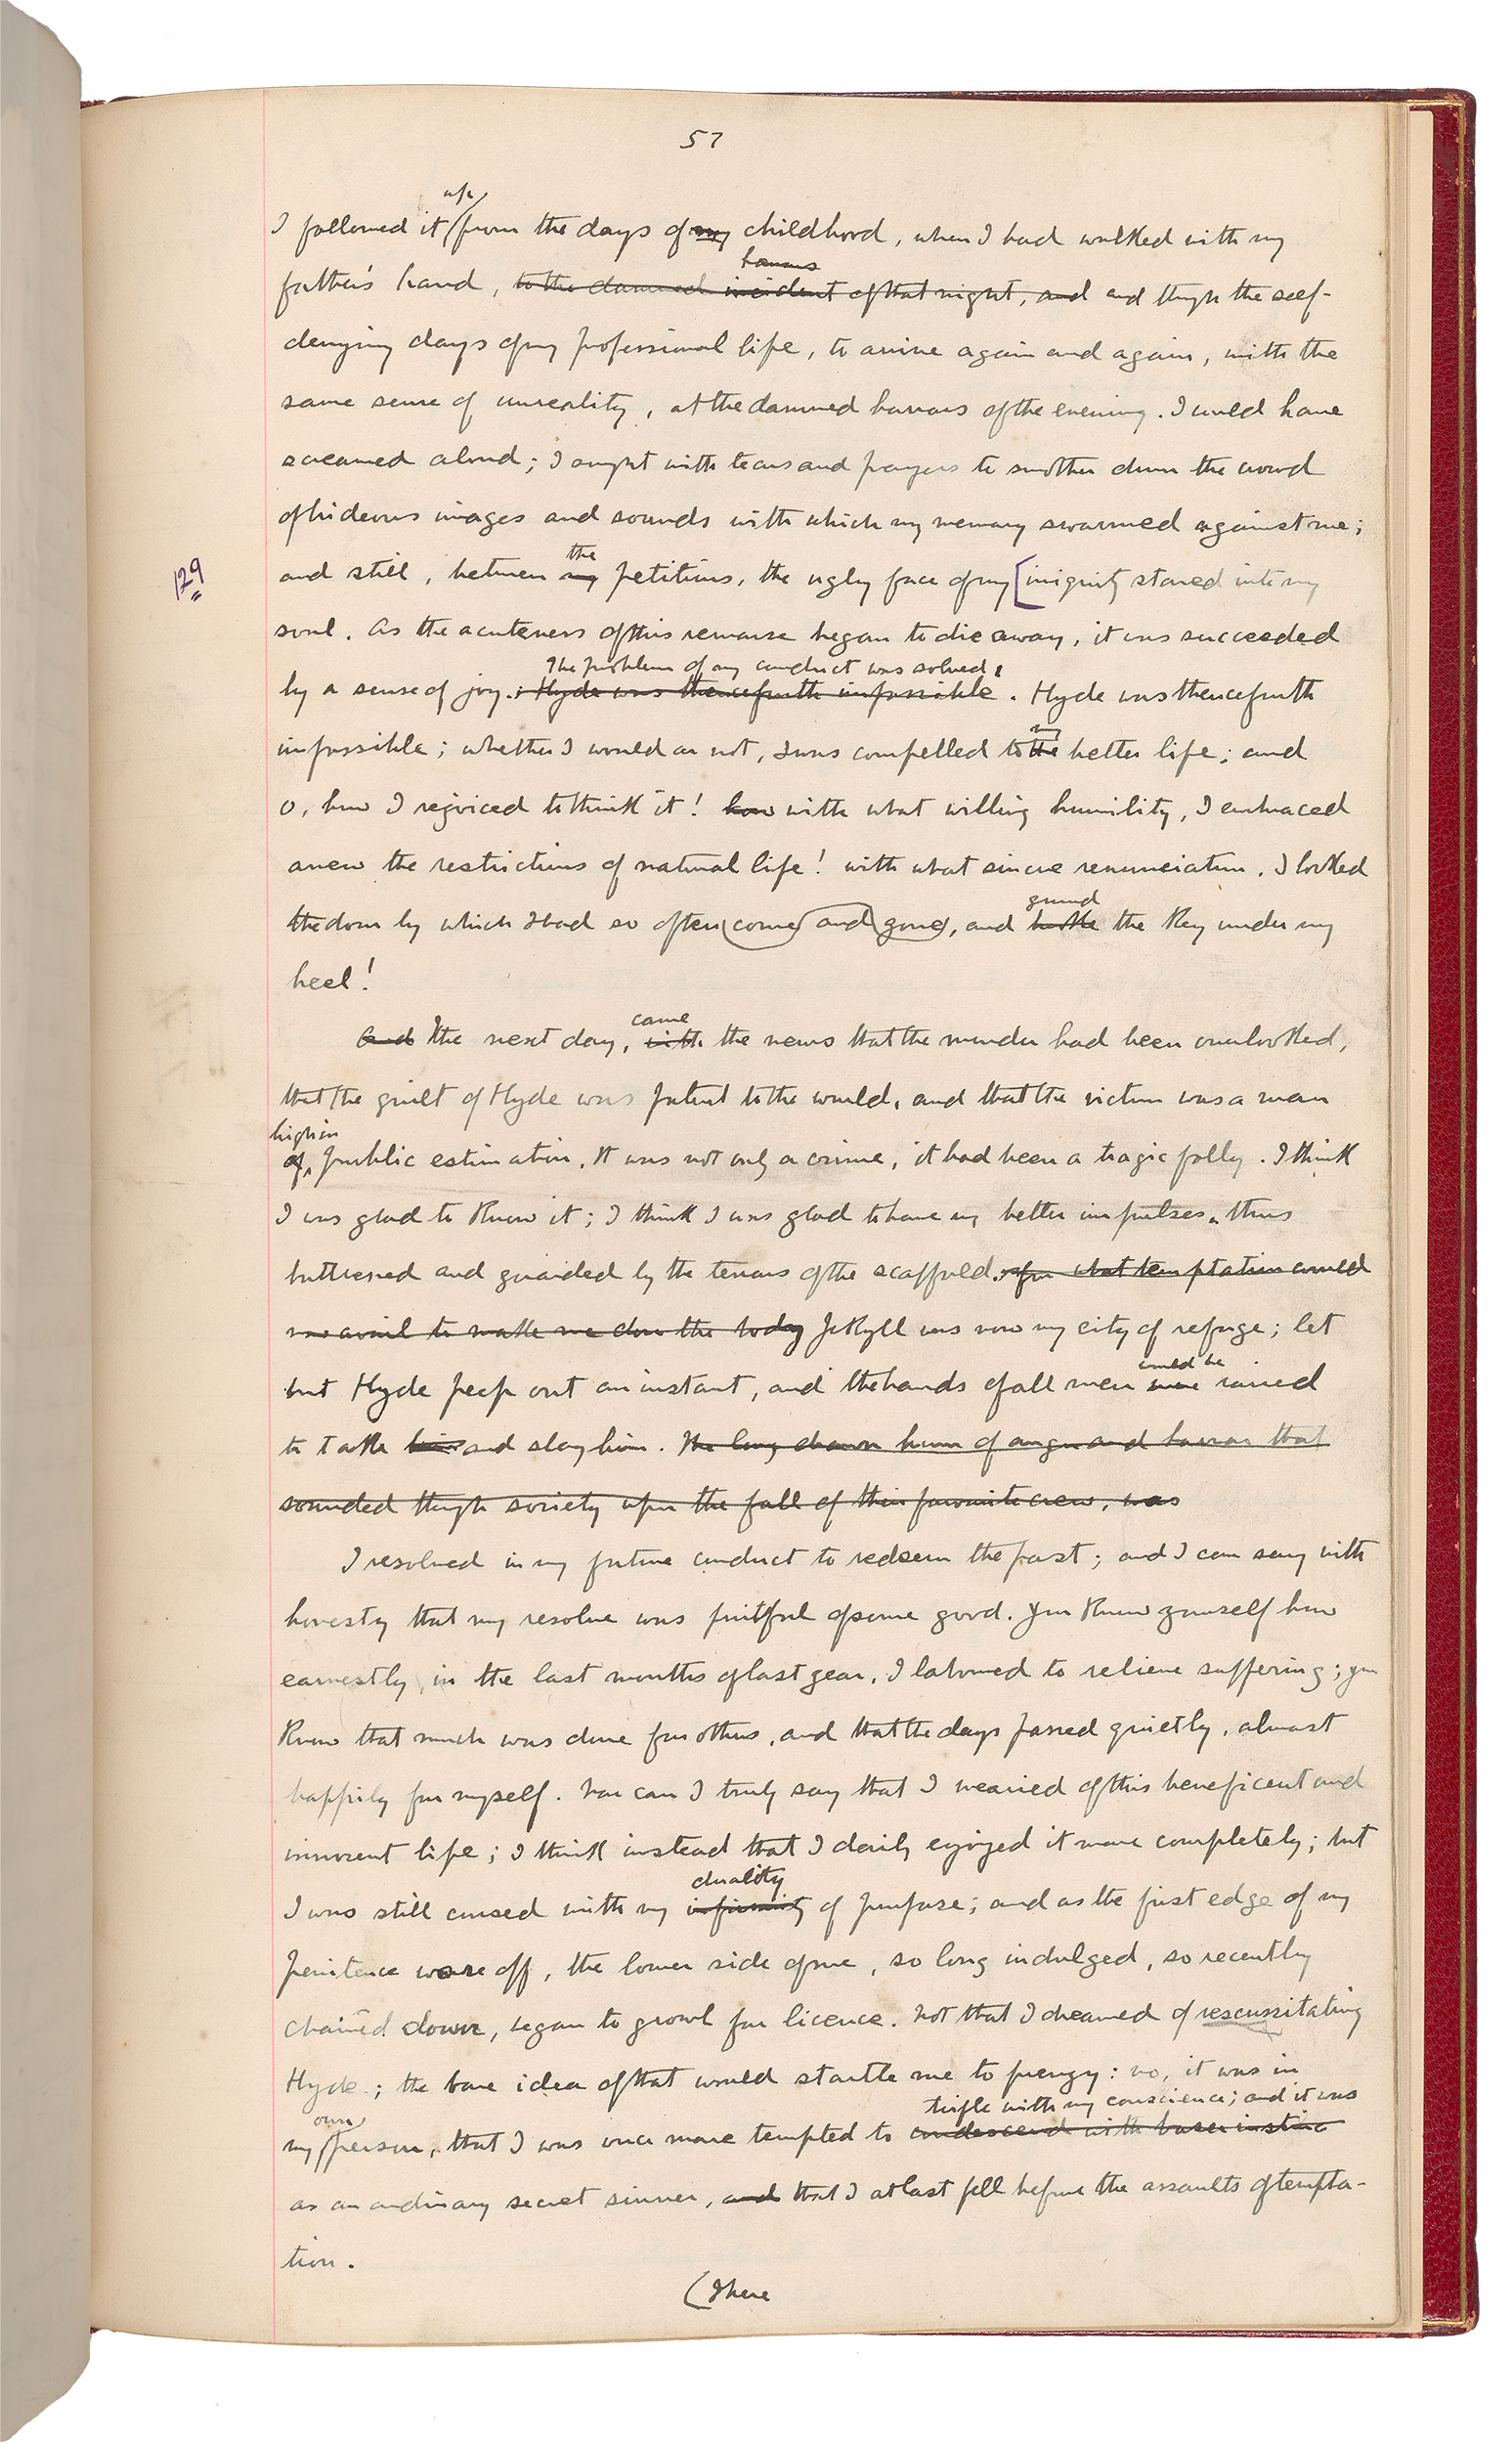 57
up
I followed it from the days of my childhood, when I had walked with my
horrors
father's hand, to the damned incident of that night, and and through the self-
denying days of my professional life, to arrive again and again, with the
same sense of unreality, at the damned horrors of the evening. I could have
screamed aloud; I sought with tears and prayers to smother down the crowd
of hideous images and sounds with which my memory swarmed against me;
the
129
and still, between my petitions, the ugly face of my [iniquity stared into my
soul. As the acuteness of this remorse began to die away, it was succeeded
The problem of my conduct was solved.
by a sense of joy. : Hyde was thenceforth impossible. Hyde was thenceforth
my
impossible; whether I would or not, I was compelled to the better life; and
O, how I rejoiced to think it! how with what willing humility, I embraced
anew the restrictions of natural life! with what sincere renunciation, I locked
grind
the door by which I had so often come and gone, and broke the key under my
heel!
came
And The next day, with the news that the murder had been overlooked,
that the guilt of Hyde was patent to the world, and that the victim was a man
high in
of public estimation. It was not only a crime, it had been a tragic folly. I think
I was glad to know it; I think I was glad to have my better impulses thus
buttressed and guarded by the terrors of the scaffold. for what temptation could
now avail to make me don the body Jekyll was now my city of refuge; let
would be
but Hyde peep out an instant, and the hands of all men were raised
to take him and slay him. The long drawn hum of anger and horror that
sounded through society upon the fall of their favourite crew, was
I resolved in my future conduct to redeem the past; and I can say with
honesty that my resolve was fruitful of some good. You know yourself how
earnestly, in the last months of last year, I laboured to relieve suffering; you
know that much was done for others, and that the days passed quietly, almost
happily for myself. Nor can I truly say that I wearied of this beneficent and
innocent life; I think instead that I daily enjoyed it more completely; but
duality
I was still cursed with my infirmity of purpose; and as the first edge of my
penitence wore off, the lower side of me, so long indulged, so recently
chained down, began to growl for licence. Not that I dreamed of rescussitating
Hyde; the bare idea of that would startle me to frenzy: no, it was in
own
trifle with my conscience; and it was
my person, that I was once more tempted to condescend with baser instinc
as an ordinary secret sinner, and that I at last fell before the assaults of tempta-
tion.
(There